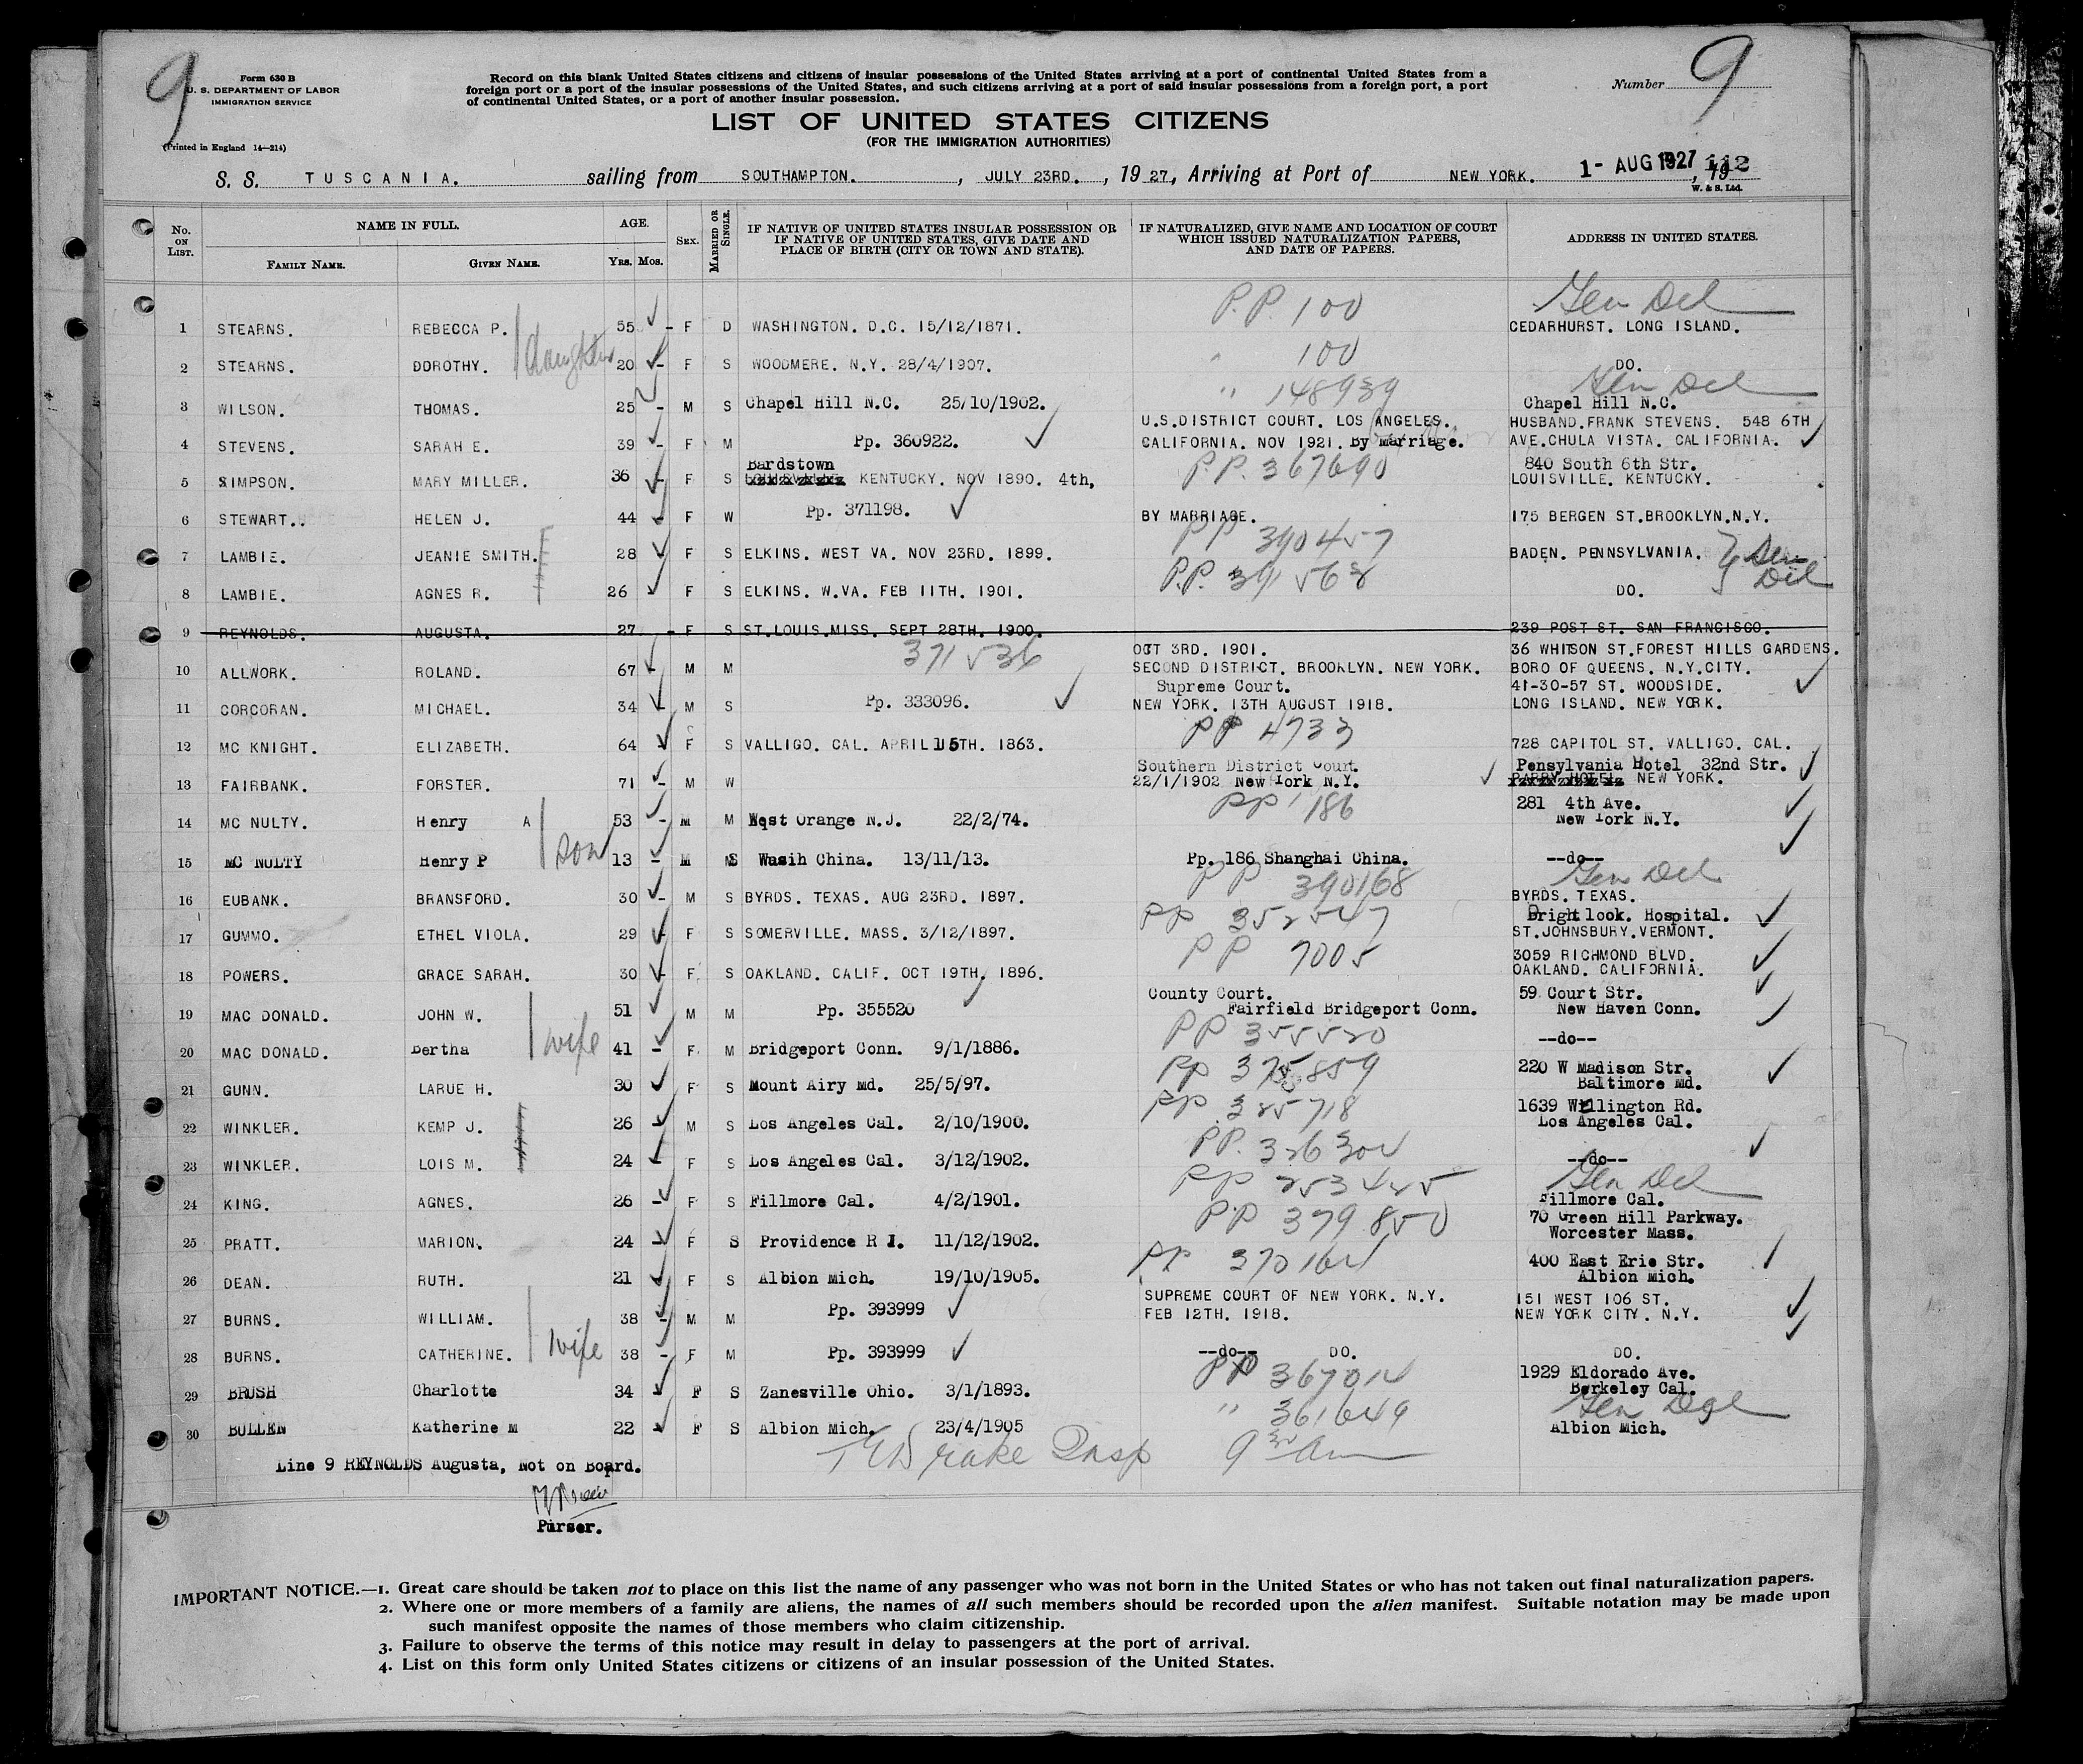 9
Form 630 B
U. S. DEPARTMENT OF LABOR
IMMIGRATION SERVICE
(Printed in England 14—214)
Record on this blank United States citizens and citizens of insular possessions of the United States arriving at a port of continental United States from a
foreign port or a port of the insular possessions of the United States, and such citizens arriving at a port of said insular possessions from a foreign port, a port
of continental United States, or a port of another insular possession.
Number 9
LIST OF UNITED STATES CITIZENS
(FOR THE IMMIGRATION AUTHORITIES)
S. S. TUSCANIA. sailing from SOUTHAMPTON. , JULY 23RD. , 19 27, Arriving at Port of NEW YORK. 1- AUG 1927 , 19 112
W. & S. Ltd.
No. ON LIST. NAME IN FULL. AGE. SEX. MARRIED OR SINGLE. IF NATIVE OF UNITED STATES INSULAR POSSESSION OR IF NATIVE OF UNITED STATES, GIVE DATE AND PLACE OF BIRTH (CITY OR TOWN AND STATE). IF NATURALIZED, GIVE NAME AND LOCATION OF COURT WHICH ISSUED NATURALIZATION PAPERS, AND DATE OF PAPERS. ADDRESS IN UNITED STATES.
FAMILY NAME. GIVEN NAME. YRS. MOS.
P.P. 100 Gen Del
1 STEARNS. REBECCA P. 55 - F D WASHINGTON. D.C. 15/12/1871. CEDARHURST. LONG ISLAND.
daughter
2 STEARNS. DOROTHY. 20 - F S WOODMERE. N.Y. 28/4/1907. " 100 DO.
" 148939 Gen Del
3 WILSON. THOMAS. 25 - M S Chapel Hill N.C. 25/10/1902. Chapel Hill N.C.
U.S.DISTRICT COURT. LOS ANGELES. HUSBAND.FRANK STEVENS. 548 6TH
4 STEVENS. SARAH E. 39 - F M Pp. 360922. CALIFORNIA. NOV 1921. By Marriage. AVE.CHULA VISTA. CALIFORNIA.
Bardstown P.P. 367690 840 South 6th Str.
5 SIMPSON. MARY MILLER. 36 - F S KENTUCKY. NOV 1890. 4th, LOUISVILLE. KENTUCKY.
6 STEWART.. HELEN J. 44 - F W Pp. 371198. BY MARRIAGE. 175 BERGEN ST.BROOKLYN.N.Y.
PP 390457
7 LAMBIE. JEANIE SMITH. 28 F S ELKINS. WEST VA. NOV 23RD. 1899. BADEN. PENNSYLVANIA. Gen Del
P.P. 391563
8 LAMBIE. AGNES R. 26 F S ELKINS. W.VA. FEB 11TH. 1901. DO.
9 REYNOLDS. AUGUSTA. 27 - F S ST.LOUIS.MISS. SEPT 28TH. 1900. 239 POST ST. SAN FRANCISCO.
371536 OCT 3RD. 1901. 36 WHITSON ST.FOREST HILLS GARDENS.
10 ALLWORK. ROLAND. 67 M M SECOND DISTRICT. BROOKLYN. NEW YORK. BORO OF QUEENS. N.Y.CITY.
Supreme Court. 41-30-57 ST. WOODSIDE.
11 CORCORAN. MICHAEL. 34 - M S Pp. 333096. NEW YORK. 13TH AUGUST 1918. LONG ISLAND. NEW YORK.
PP 4733
12 MC KNIGHT. ELIZABETH. 64 F S VALLIGO. CAL. APRIL 15TH. 1863. 728 CAPITOL ST. VALLIGO. CAL.
Southern District Court. Pensylvania Hotel 32nd Str.
13 FAIRBANK. FORSTER. 71 - M W 22/1/1902 New York N.Y. NEW YORK.
PP 186 281 4th Ave.
14 MC NULTY. Henry A 53 - M M West Orange N.J. 22/2/74. New York N.Y.
son
15 MC NULTY Henry P 13 - M S Wusih China. 13/11/13. Pp. 186 Shanghai China. --do--
PP 390168 Gen Del
16 EUBANK. BRANSFORD. 30 - M S BYRDS. TEXAS. AUG 23RD. 1897. BYRDS. TEXAS.
PP 352547 Bright look. Hospital.
17 GUMMO. ETHEL VIOLA. 29 - F S SOMERVILLE. MASS. 3/12/1897. ST.JOHNSBURY.VERMONT.
PP 7005 3059 RICHMOND BLVD.
18 POWERS. GRACE SARAH. 30 - F S OAKLAND. CALIF. OCT 19TH. 1896. OAKLAND. CALIFORNIA.
County Court. 59 Court Str.
19 MAC DONALD. JOHN W. 51 M M Pp. 355520 Fairfield Bridgeport Conn. New Haven Conn.
wife PP 355520
20 MAC DONALD. Bertha 41 - F M Bridgeport Conn. 9/1/1886. --do--
PP 375859 220 W Madison Str.
21 GUNN. LARUE H. 30 F S Mount Airy Md. 25/5/97. Baltimore Md.
PP 325718 1639 Wellington Rd.
22 WINKLER. KEMP J. 26 M S Los Angeles Cal. 2/10/1900. Los Angeles Cal.
PP. 326304
23 WINKLER. LOIS M. 24 F S Los Angeles Cal. 3/12/1902. --do--
PP 253425 Gen Del
24 KING. AGNES. 26 - F S Fillmore Cal. 4/2/1901. Fillmore Cal.
PP 379850 70 Green Hill Parkway.
25 PRATT. MARION. 24 - F S Providence R I. 11/12/1902. Worcester Mass.
PP 370164 400 East Erie Str.
26 DEAN. RUTH. 21 - F S Albion Mich. 19/10/1905. Albion Mich.
SUPREME COURT OF NEW YORK. N.Y. 151 WEST 106 ST.
27 BURNS. WILLIAM. 38 - M M Pp. 393999 FEB 12TH. 1918. NEW YORK CITY. N.Y.
wife
28 BURNS. CATHERINE. 38 - F M Pp. 393999 --do-- DO. DO.
PP 367014 1929 Eldorado Ave.
29 BRUSH Charlotte 34 F S Zanesville Ohio. 3/1/1893. Berkeley Cal.
" 361649 Gen Del
30 BULLEN Katherine M 22 F S Albion Mich. 23/4/1905 Albion Mich.
Drake Insp 9 30 am
Line 9 REYNOLDS Augusta, Not on Board.
Purser.
IMPORTANT NOTICE.—1. Great care should be taken not to place on this list the name of any passenger who was not born in the United States or who has not taken out final naturalization papers.
2. Where one or more members of a family are aliens, the names of all such members should be recorded upon the alien manifest. Suitable notation may be made upon
such manifest opposite the names of those members who claim citizenship.
3. Failure to observe the terms of this notice may result in delay to passengers at the port of arrival.
4. List on this form only United States citizens or citizens of an insular possession of the United States.